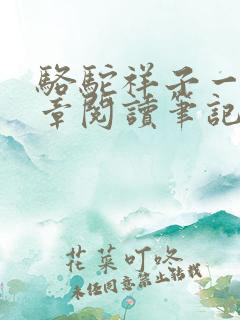 駱駝祥子一
章閱讀筆記
花葉叮咚
未經同意禁止轉載